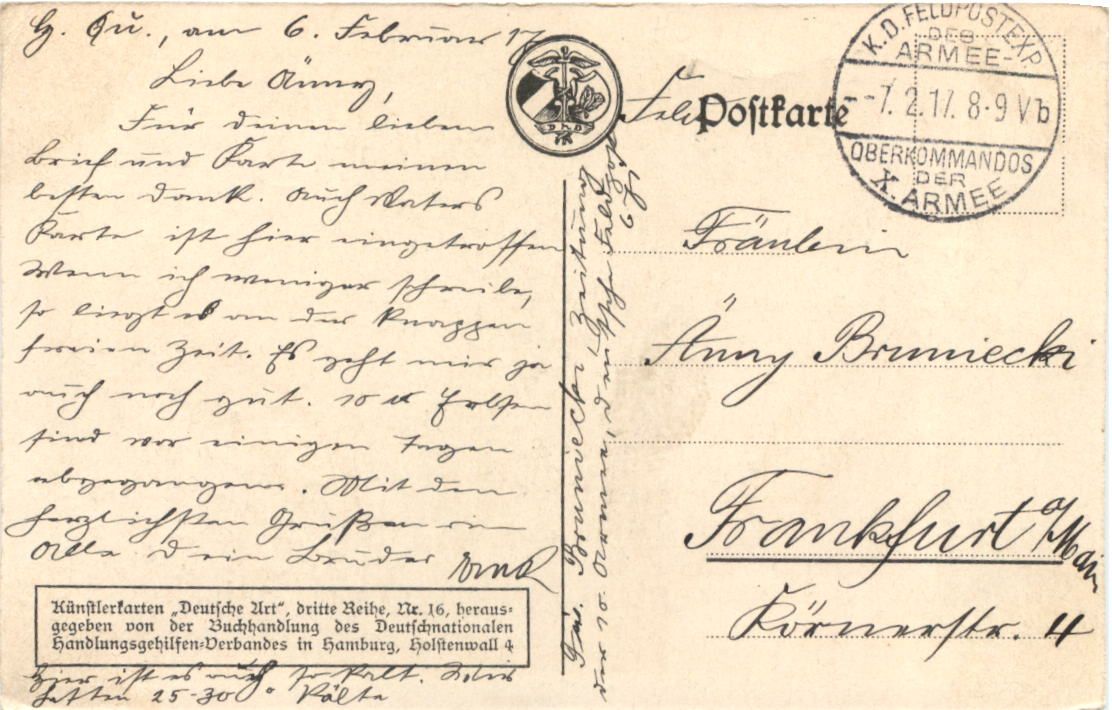 H. Qu., am 6. Februar 17
Liebe Änny,
Für deinen lieben
Brief und Karte meinen
besten Dank. Auch Vaters
Karte ist hier eingetroffen
Wenn ich weniger schreibe,
so liegt es an der knappen
freien Zeit. Es geht mir ja
auch noch gut. 10 M
sind vor einigen Tagen
abgegangen. Mit den
herzlichsten Grüßen an
Alle Dein Bruder
Künstlerkarten „Deutsche Art“, dritte Reihe, Nr. 16, heraus-
gegeben von der Buchhandlung des Deutschnationalen
Handlungsgehilfen-Verbandes in Hamburg, Holstenwall 4
Hier ist es auch so kalt. Wir
hatten 25-30° Kälte
Bruniecki Zeitung
der 10. Armee, deutsche Feldpost
D.H.V.
Feld Postkarte
K.D. FELDPOSTEXP.
DES
ARMEE-
-7.2.17. 8-9 Vb
OBERKOMMANDOS
DER
X. ARMEE
Fräulein
Änny Bruniecki
Frankfurt a/Main
Körnerstr. 4